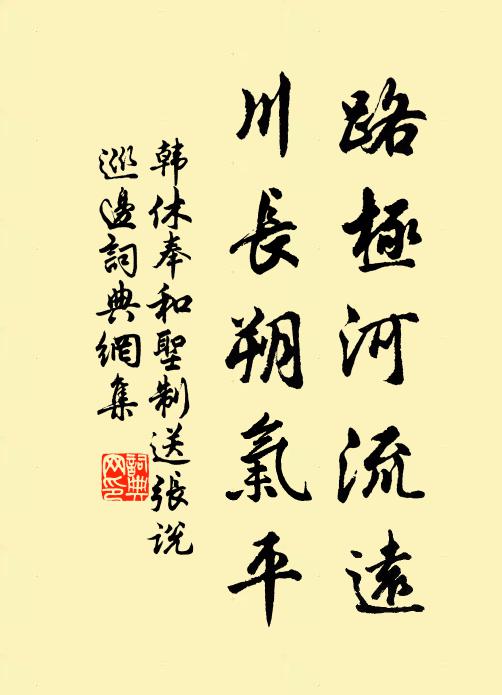 路極河流遠
川長朔氣平
韩休奉和聖制送張説
巡邊詞典網集
詞典网印